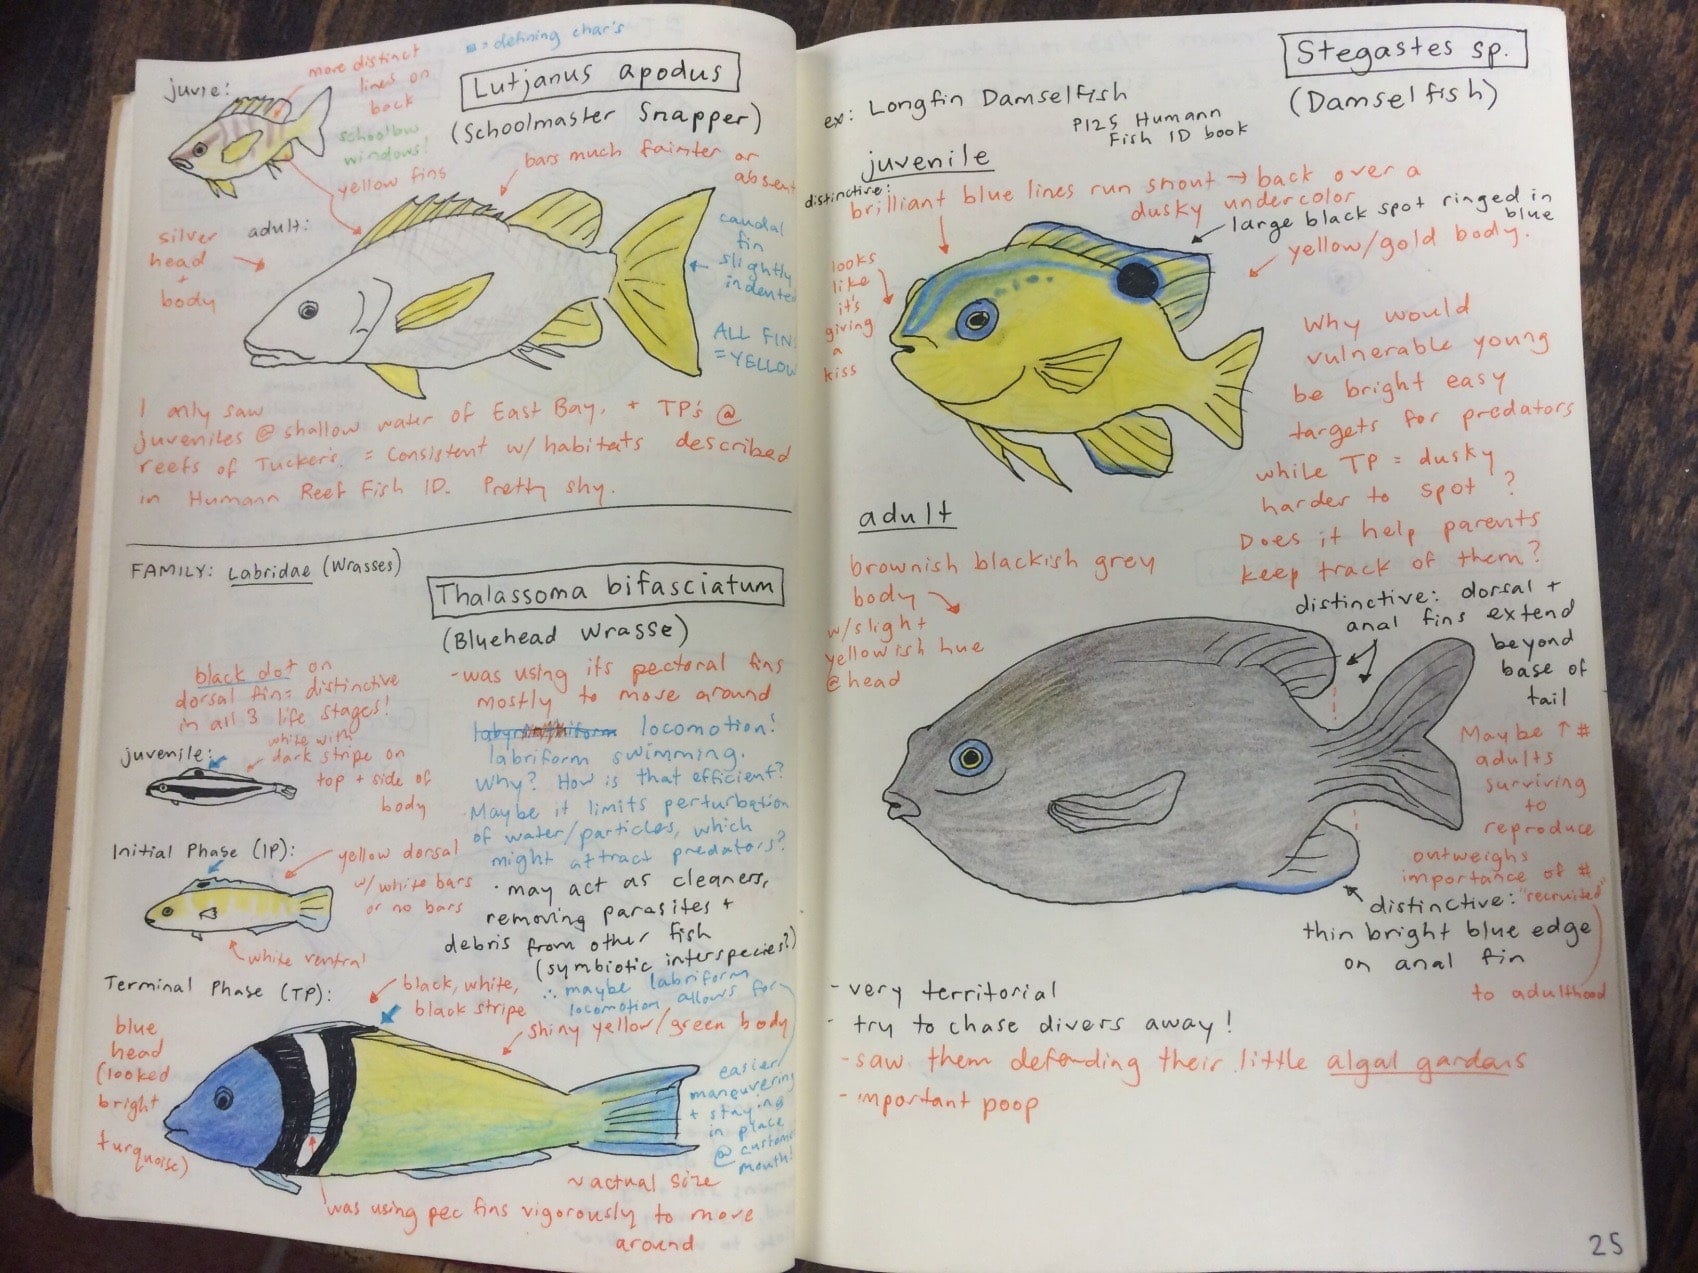 ■ = defining char's
juvie:
more distinct
lines on
back
Lutjanus apodus
(Schoolmaster Snapper)
windows!
yellow fins
bars much fainter or
absent
adult:
silver
head
+
body
caudal
fin
slightly
indented
ALL FINS
= YELLOW
I only saw
juveniles @ shallow water of East Bay, + TP's @
reefs of Tucker's. = Consistent w/ habitats described
in Humann Reef Fish ID. Pretty shy.
FAMILY: Labridae (Wrasses)
Thalassoma bifasciatum
(Bluehead Wrasse)
black dot on
dorsal fin = distinctive
in all 3 life stages!
juvenile:
white with
dark stripe on
top + side of
body
Initial Phase (IP):
yellow dorsal
w/ white bars
or no bars
white ventral
- was using its pectoral fins
mostly to move around
locomotion:
labriform swimming.
Why? How is that efficient?
Maybe it limits perturbation
of water/particles, which
might attract predators?
· may act as cleaners,
removing parasites +
debris from other fish
(symbiotic interspecies?)
∴ maybe labriform
locomotion allows for
easier
maneuvering
+ staying
in place
@ customer
mouth!
Terminal Phase (TP):
black, white,
black stripe
shiny yellow/green body
blue
head
(looked
bright
turquoise)
~ actual size
was using pec fins vigorously to move
around
Stegastes sp.
(Damselfish)
ex: Longfin Damselfish
P125 Humann
Fish ID book
juvenile
distinctive:
brilliant blue lines run snout → back over a
dusky undercolor
large black spot ringed in
blue
yellow/gold body.
looks
like
it's
giving
a
kiss
Why would
vulnerable young
be bright easy
targets for predators
while TP = dusky
harder to spot?
Does it help parents
keep track of them?
adult
brownish blackish grey
body
w/ slight
yellowish hue
@ head
distinctive: dorsal +
anal fins extend
beyond
base of
tail
Maybe ↑ #
adults
surviving
to
reproduce
outweighs
importance of #
"recruited"
to adulthood
distinctive:
thin bright blue edge
on anal fin
- very territorial
- try to chase divers away!
- saw them defending their little algal gardens
- important poop
25